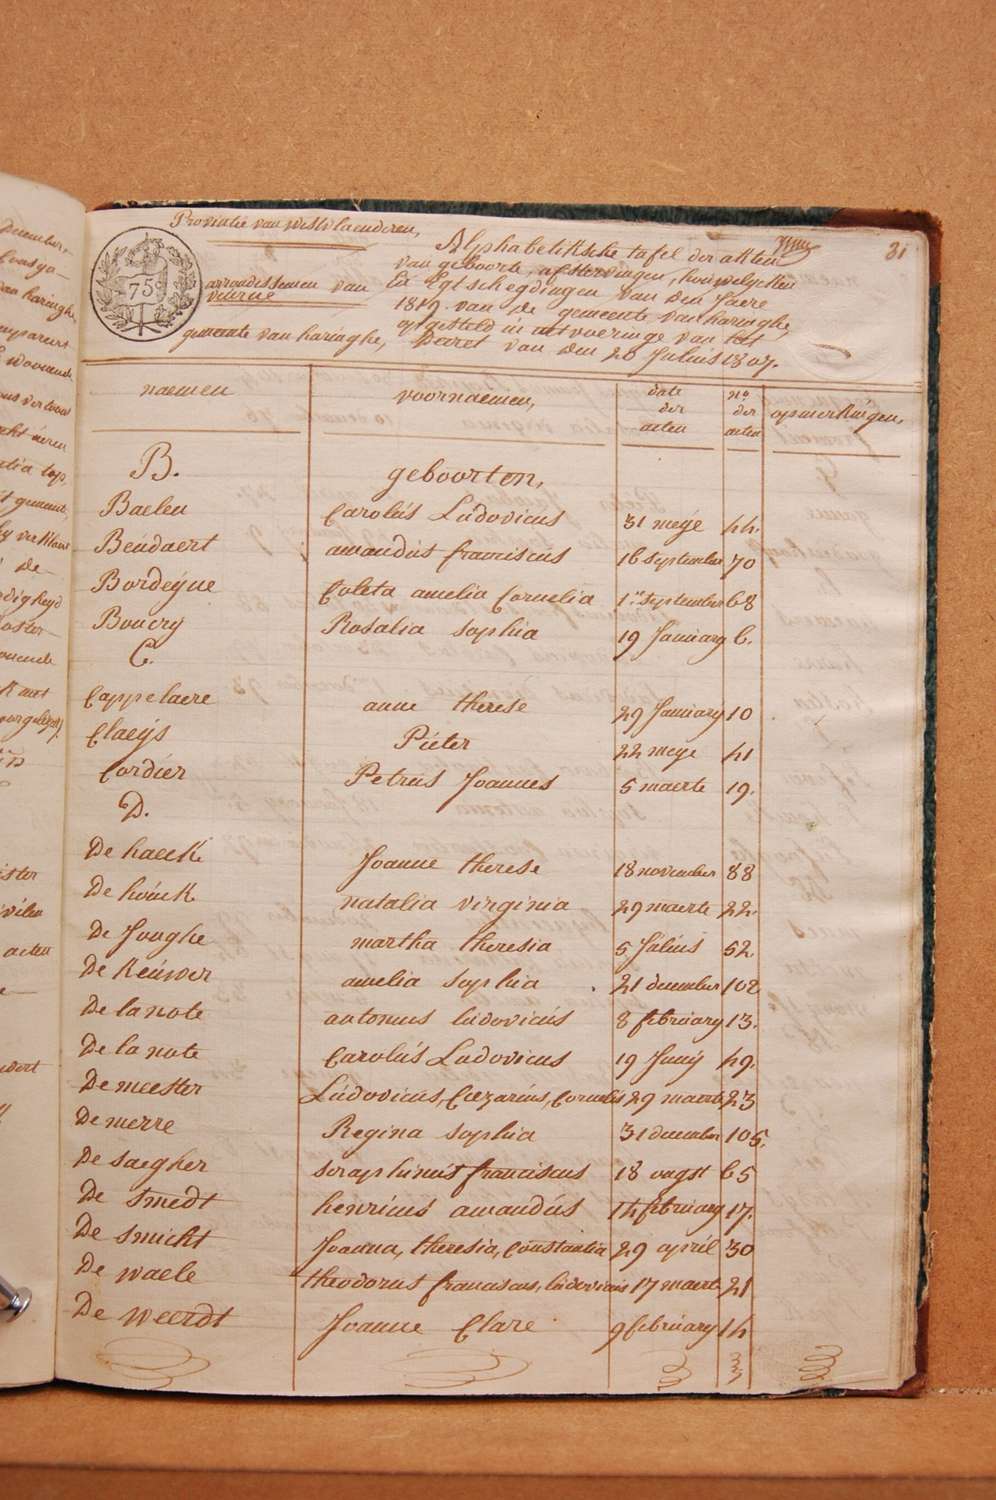 Provintie van westvlaenderen,
31
75
arrondissement van
veurne
gemeente van haringhe,
Alphabetiksche tafel der akten
van geboorte, afstervingen, houwelycken
en Egtschegdingen van den Jaere
1819. van de gemeente van haringhe,
opgesteld in uitvoeringe van het
Decret van den 20 Julius 1807.
naemen voornaemen, date der acten no. der acten opmerkingen,
B. geboorten,
Baelen Carolus Ludovicus 31 meye 44.
Beudaert amandus franciscus 16 september 70
Bordeyne Coleta amelia Cornelia 1er september 68
Boucry Rosalia sophia 19 January 6.
C.
Cappelaere anne therese 29 January 10
Claeys Pieter 22 meye 41
Cordier Petrus Joannes 5 maerte 19.
D.
De haeck Joanne therese 18 november 88
De houck natalia virginia 29 maerte 22.
De Jonghe martha theresia 5 Julius 52
De Keuwer amelia sophia 21 december 102
De la note antonius ludovicus 8 february 13.
De la note Carolus Ludovicus 19 Juny 49.
De meester Ludovicus, Cæzarius, Cornelis 29 maerte 23
De merre Regina sophia 31 december 105.
De saegher seraphinus franciscus 18 ougst 65
De smedt henricus amandus 14 february 17.
De smicht Joanna, theresia, Constantia 29 april 30
De waele theodorus franciscus, ludovicus 17 maerte 21
De weerdt Joanne Clare 9 february 14